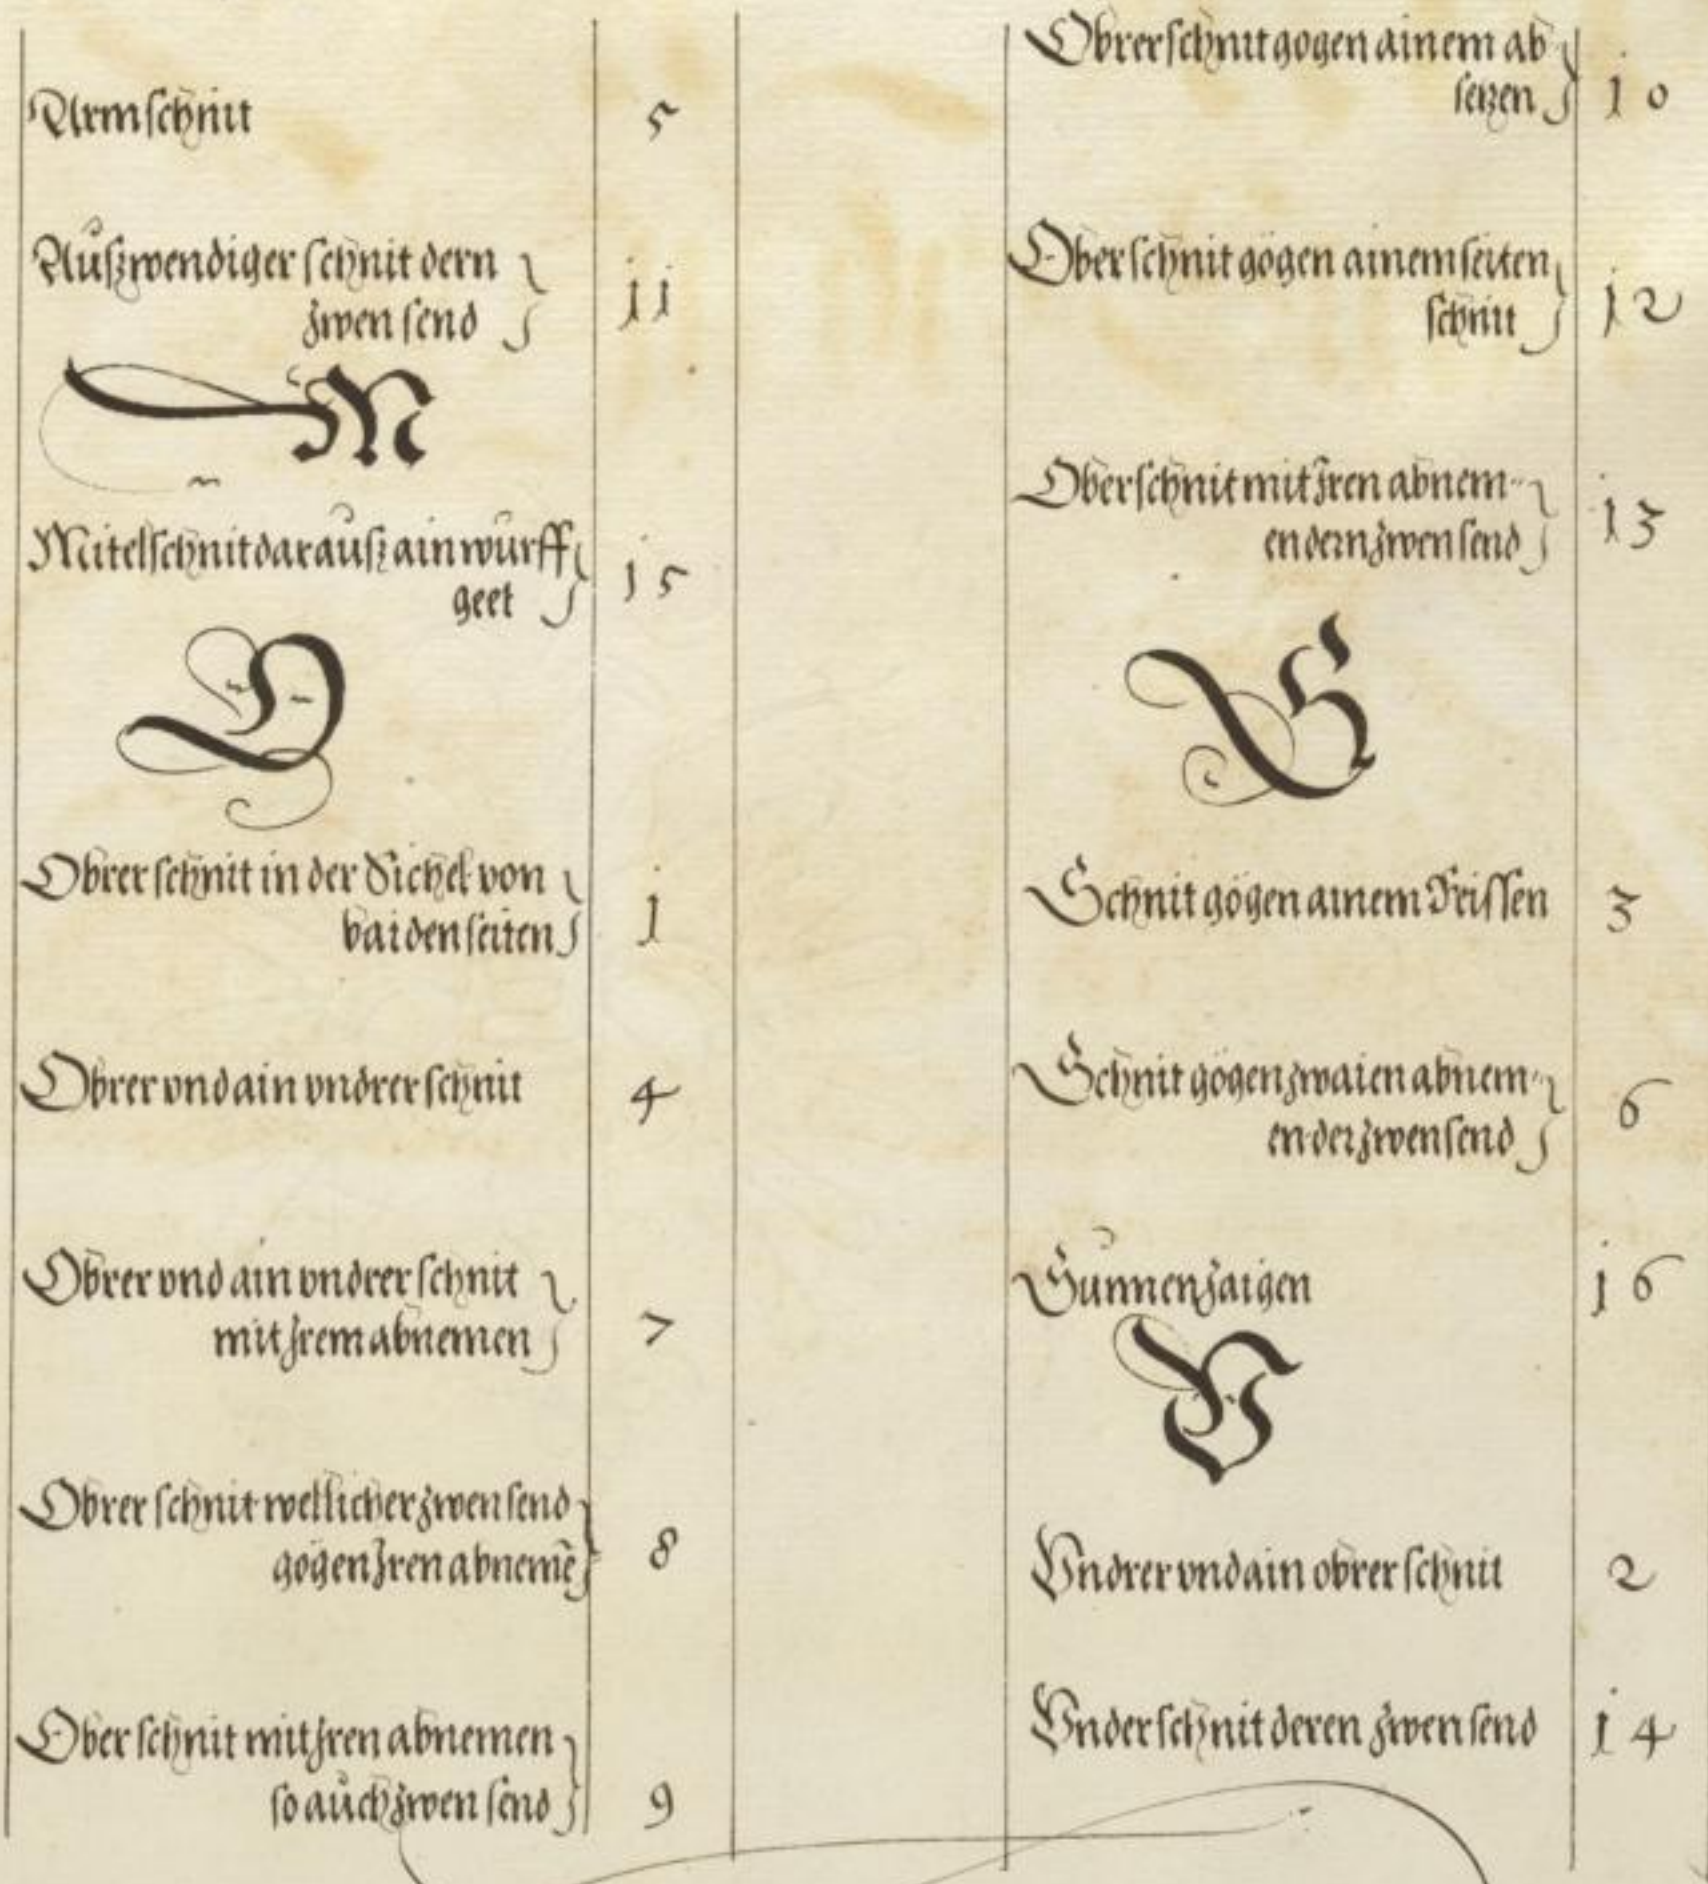 Armschnit 5
Außzwendiger schnit dern
zwen send 11
M
Mitelschnit darauß ain wurff
geet 15
O
Obrer schnit in der Sichel von
baiden seiten 1
Obrer vnd ain vndrer schnit 4
Obrer vnd ain vndrer schnit
mit Irem abnemen 7
Obrer schnit wellicher zwen send
gögen Iren abnemē 8
Ober schnit mit Iren abnemen
so auch zwen send 9
Obrer schnit gogen ainem ab
setzen 10
Ober schnit gögen ainem seiten
schnit 12
Ober schnit mit Iren abnem-
en dern zwen send 13
S
Schnit gögen ainem Reissen 3
Schnit gögen zwaien abnem-
en der zwen send 6
Sunnen zaigen 16
V
Vndrer vnd ain obrer schnit 2
Vnder schnit deren zwen send 14